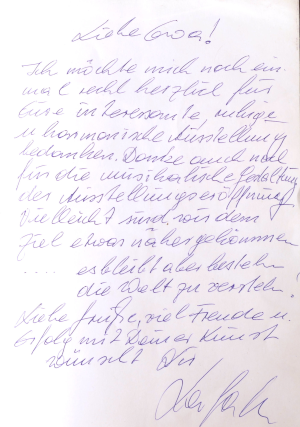 Liebe Ewa!
Ich möchte mich noch ein-
mal recht herzlich für
Eure interessante, ruhige
u harmonische Ausstellung
bedanken. Danke auch noch
für die musikalische Gestaltung
der Ausstellungseröffnung.
Vielleicht sind wir dem
Ziel etwas näher gekommen
.... es bleibt aber bestehn
die Welt zu verstehn!
Liebe Grüße, viel Freude u.
Erfolg mit Deiner Kunst
wünscht Dir